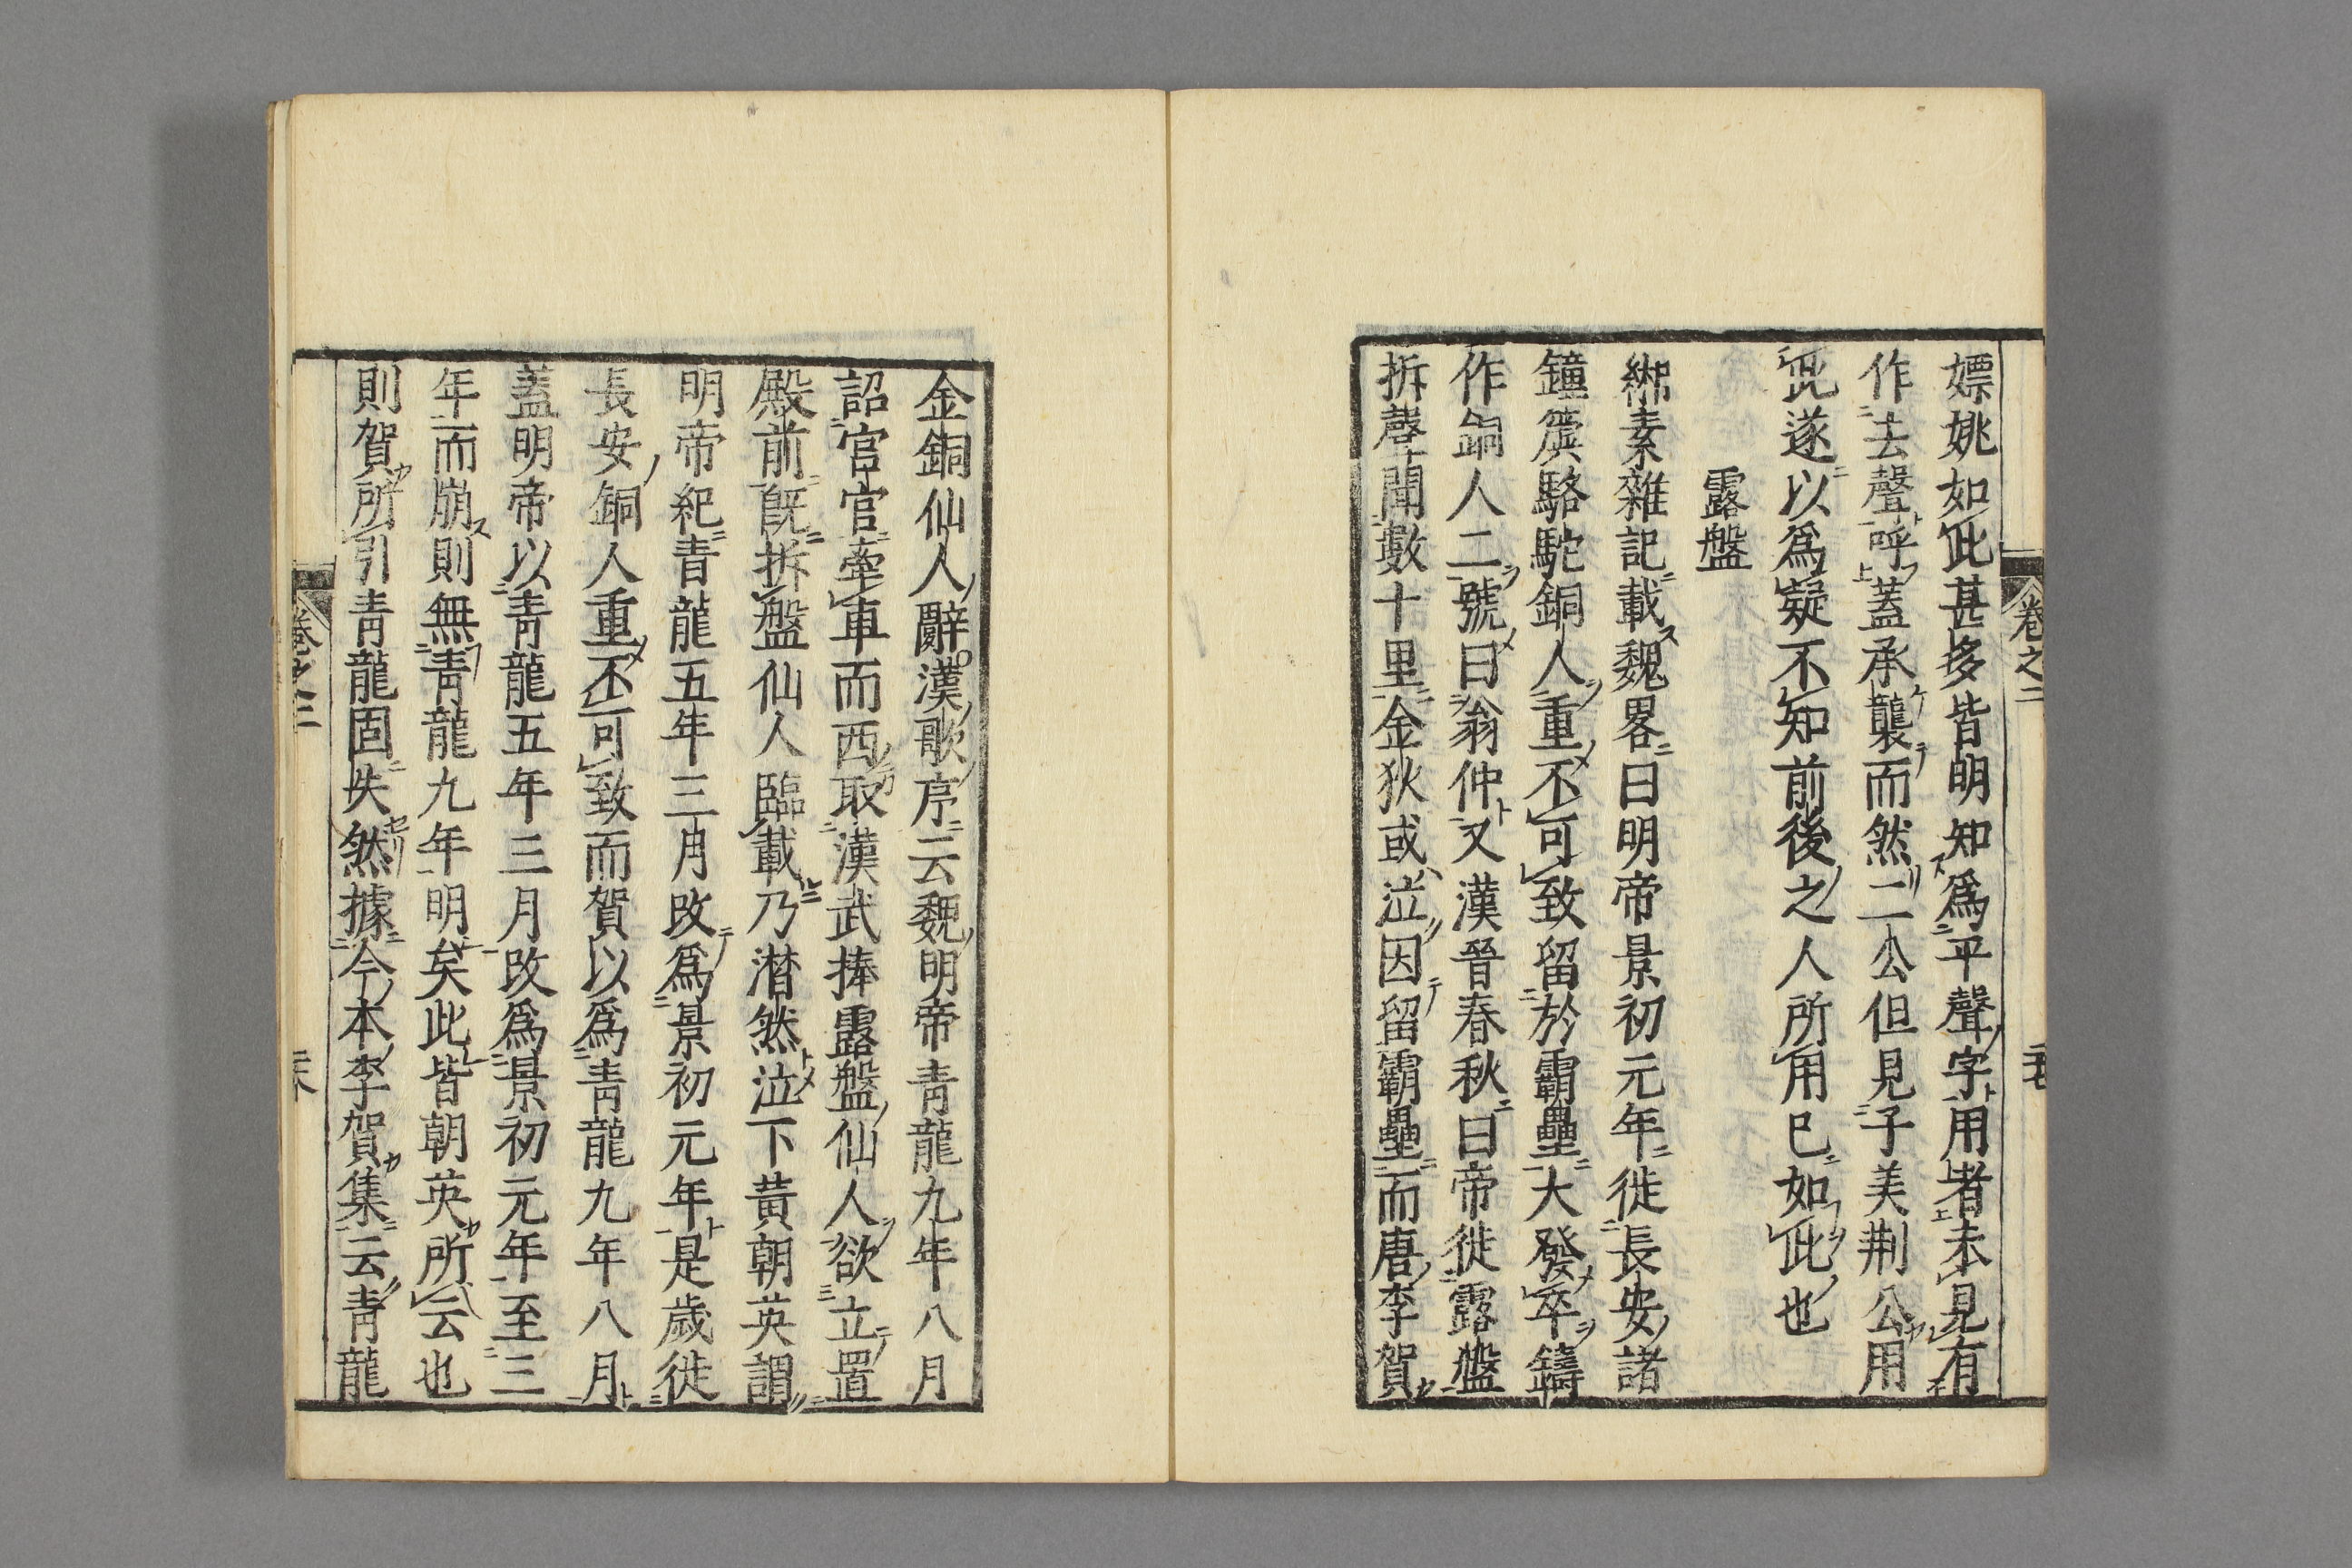 嫖姚如此甚多皆明知爲平聲字用者未見有
作去聲呼蓋承襲而然二公但見子美荆公用
此遂以爲疑不知前後之人所用已如此也
露盤
緗素雜記載魏畧曰明帝景初元年徙長安諸
鐘簴駱駝銅人重不可致留於霸壘大發卒鑄
作銅人二號曰翁仲又漢晉春秋曰帝徙露盤
拆聲聞數十里金狄或泣因留霸壘而唐李賀
卷之二
金銅仙人辭漢歌序云魏明帝青龍九年八月
詔官官牽車而西取漢武捧露盤仙人欲立置
殿前既拆盤仙人臨載乃潸然泣下黄朝英謂
明帝紀青龍五年三月改爲景初元年是歲徙
長安銅人重不可致而賀以爲青龍九年八月
蓋明帝以青龍五年三月改爲景初元年至三
年而崩則無青龍九年明矣此皆朝英所云也
則賀所引青龍固失然據今本李賀集云青龍
卷之二